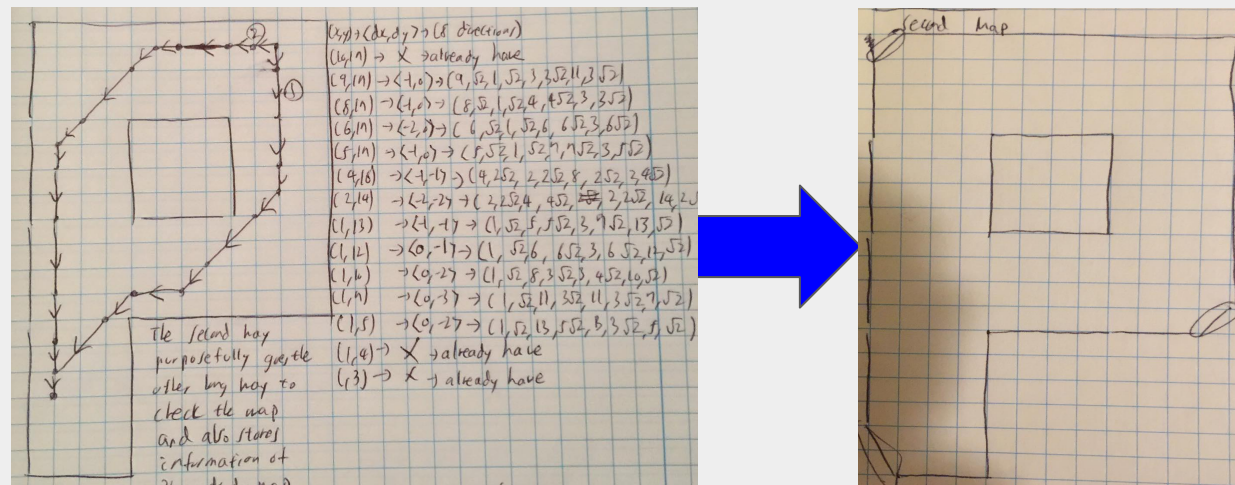 (x,y)→<dx,dy>→(8 directions)
→ X → already have
(9,17) →<-1,0>→(9,√2,1,√2,3,3√2,11,3√2)
(8,17) →<-1,0>→(8,√2,1,√2,4,4√2,3,3√2)
(6,17) →<-2,0>→(6,√2,1,√2,6,6√2,3,6√2)
(5,17) →<-1,0>→(5,√2,1,√2,7,7√2,3,5√2)
(4,16) →<-1,-1>→(4,2√2,2,2√2,8,2√2,2,4√2)
(2,14) →<-2,-2>→(2,2√2,4,4√2, 2,2√2,14,2√
(1,13) →<-1,-1>→(1,√2,5,5√2,3,9√2,13,√2)
(1,12) →<0,-1>→(1,√2,6,6√2,3,6√2,12,√2)
→<0,-2>→(1,√2,8,3√2,3,4√2,10,√2)
(1,7) →<0,-3>→(1,√2,11,3√2,11,3√2,7,√2)
(1,5) →<0,-2>→(1,√2,13,5√2, 3√2,5,√2)
(1,4) → X → already have
→ X → already have
②
①
The second way
purposefully goes the
other long way to
check the map
and also stores
information of
map
Second Map